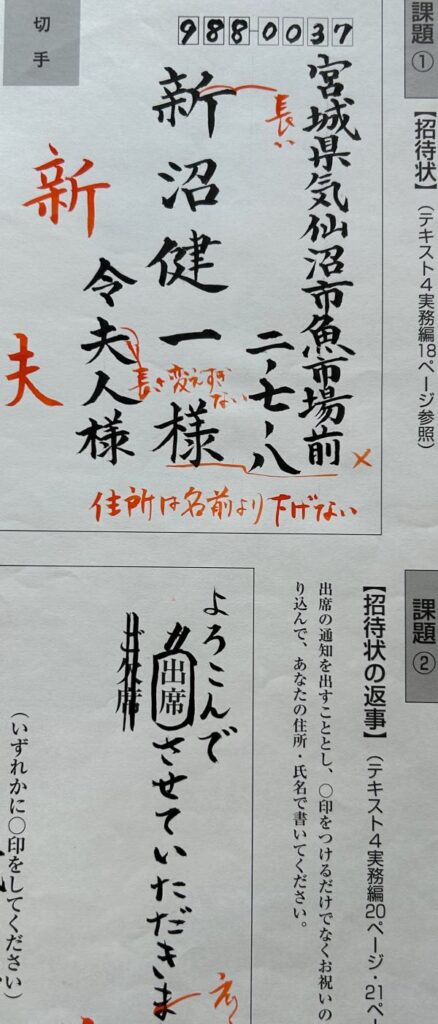 課題①
【招待状】（テキスト4実務編18ページ参照）
切手
988-0037
宮城県気仙沼市魚市場前
二ー七ー八
新沼健一様
令夫人様
長い
新
夫
長さ変えすぎない
×
住所は名前より下げない
課題②
【招待状の返事】（テキスト4実務編20ページ・21ペー
出席の通知を出すこととし、〇印をつけるだけでなくお祝いの
り込んで、あなたの住所・氏名で書いてください。
よろこんで
出席させていただきま
ご欠席
（いずれかに〇印をしてください）